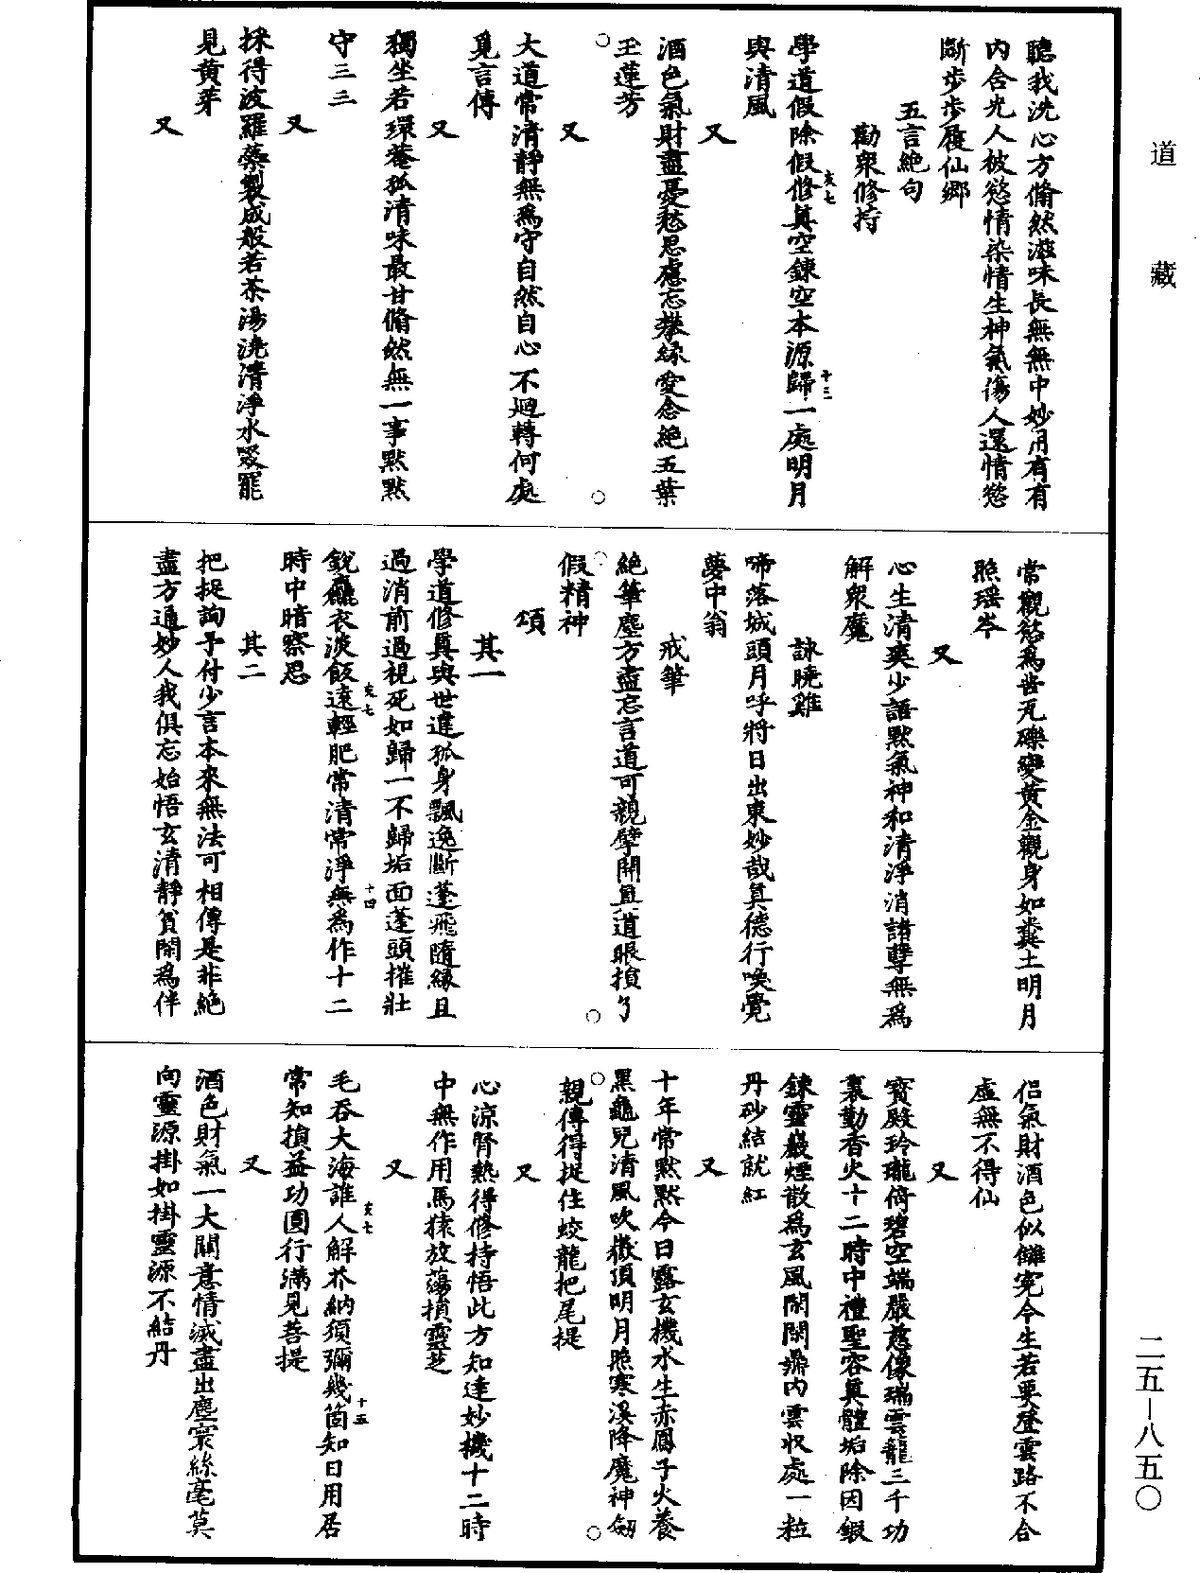 道藏
聽我洗心方翛然滋味長無無中妙用有有
內含光人被慾情染情生神氣傷人還情慾
斷步步履仙鄉
五言絕句
勸衆修持
學道假除假修眞空鍊空本源歸一處明月
與清風
又
酒色氣財盡憂愁思慮忘攀緣愛念絕五葉
玉蓮芳
又
大道常清靜無爲守自然自心不迴轉何處
覓言傳
又
獨坐若環菴孤清味最甘翛然無一事默默
守三三
又
採得波羅藥製成般若茶湯澆清淨水啜罷
見黃芽
又
常觀慾爲苦瓦礫變黃金觀身如糞土明月
照瑤岑
又
心生清爽少語默氣神和清淨消諸孽無爲
解衆魔
詠曉雞
啼落城頭月呼將日出東妙哉眞德行喚覺
夢中翁
戒筆
絕筆塵方盡忘言道可親擘開眞道眼損了
假精神
頌
其一
學道修眞與世違孤身飄逸斷蓬飛隨緣且
過消前過視死如歸一不歸垢面蓬頭摧壯
銳麤衣淡飯遠輕肥常清常淨無爲作十二
時中暗察思
其二
把捉詢予付少言本來無法可相傳是非絕
盡方通妙人我俱忘始悟玄清靜貧閑爲伴
侣氣財酒色似讎寃今生若要登雲路不合
虛無不得仙
又
寳殿玲瓏倚碧空端嚴慈像瑞雲龍三千功
裏勤香火十二時中禮聖容眞體垢除因鍜
鍊靈巖煙散爲玄風閑閑鼎內雲收處一粒
丹砂結就紅
又
十年常默默今日露玄機水生赤鳳子火養
黑龜兒清風吹嶽頂明月照寒溪降魔神劒
親傳得捉住蛟龍把尾提
又
心涼腎熱得修持悟此方知達妙機十二時
中無作用馬猿放蕩損靈芝
又
毛吞大海誰人解芥納須彌幾箇知日用居
常知損益功圓行滿見菩提
又
酒色財氣一大關意情滅盡出塵寰絲毫莫
向靈源掛如掛靈源不結丹
亥七
十三
亥七
十四
亥七
十五
二五—八五〇